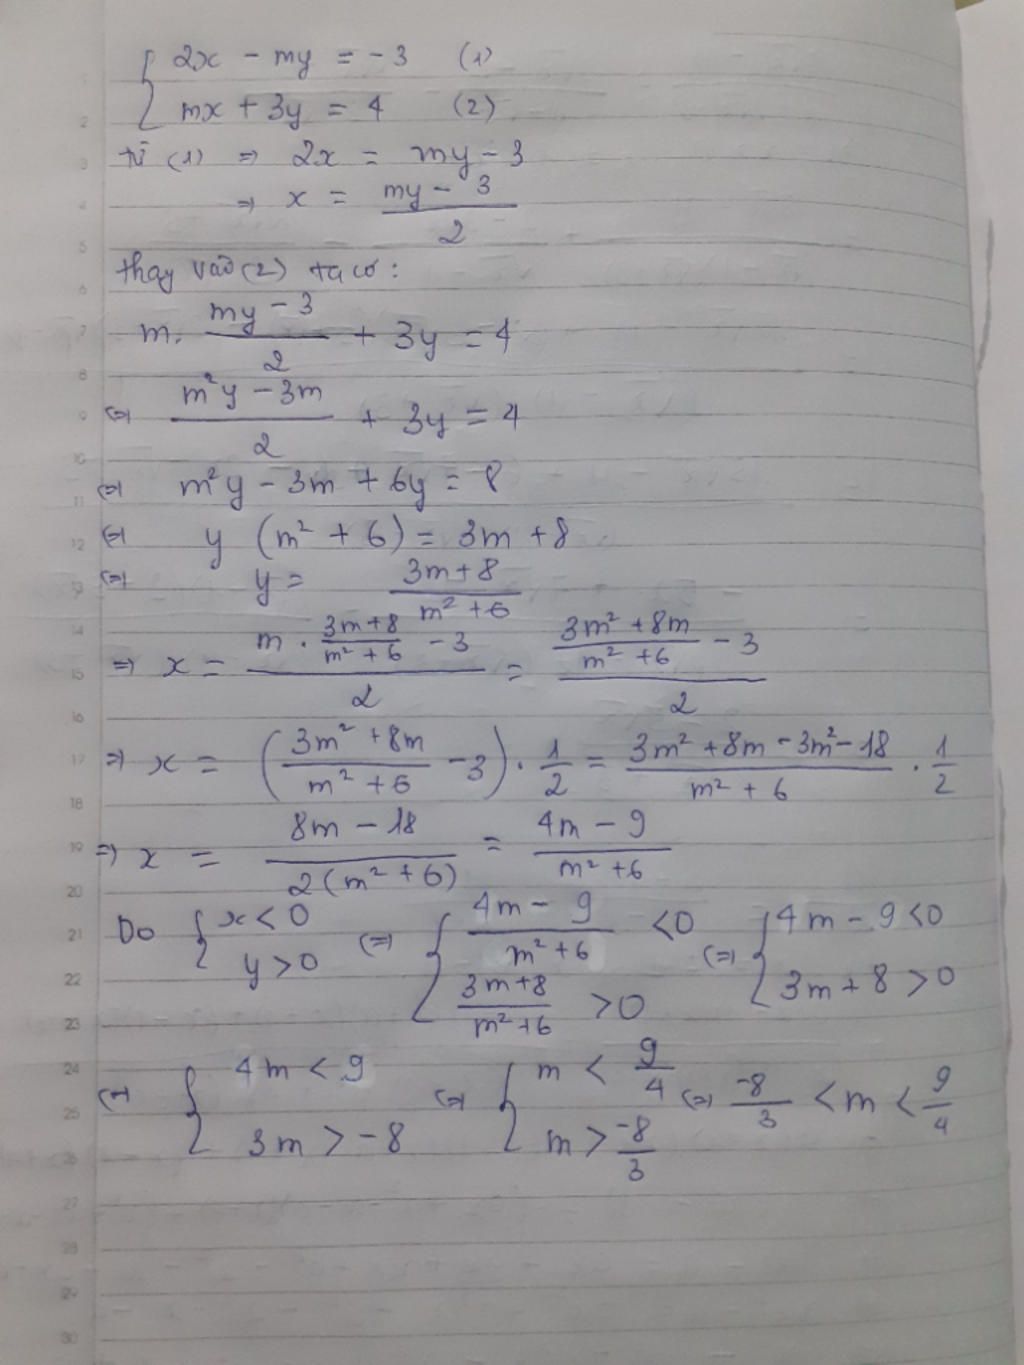 { 2x - my = -3 (1)
{ mx + 3y = 4 (2)
từ (1) ⇒ 2x = my - 3
⇒ x = (my - 3)/2
thay vào (2) ta có:
m. (my - 3)/2 + 3y = 4
⇔ (m²y - 3m)/2 + 3y = 4
⇔ m²y - 3m + 6y = 8
⇔ y (m² + 6) = 3m + 8
⇔ y = (3m + 8)/(m² + 6)
⇒ x = (m . (3m + 8)/(m² + 6) - 3)/2 = ((3m² + 8m)/(m² + 6) - 3)/2
⇒ x = ((3m² + 8m)/(m² + 6) - 3) . 1/2 = (3m² + 8m - 3m² - 18)/(m² + 6) . 1/2
⇒ x = (8m - 18)/(2(m² + 6)) = (4m - 9)/(m² + 6)
Do { x < 0 ; y > 0 ⇔ { (4m - 9)/(m² + 6) < 0 ; (3m + 8)/(m² + 6) > 0 ⇔ { 4m - 9 < 0 ; 3m + 8 > 0
⇔ { 4m < 9 ; 3m > -8 ⇔ { m < 9/4 ; m > -8/3 ⇔ -8/3 < m < 9/4